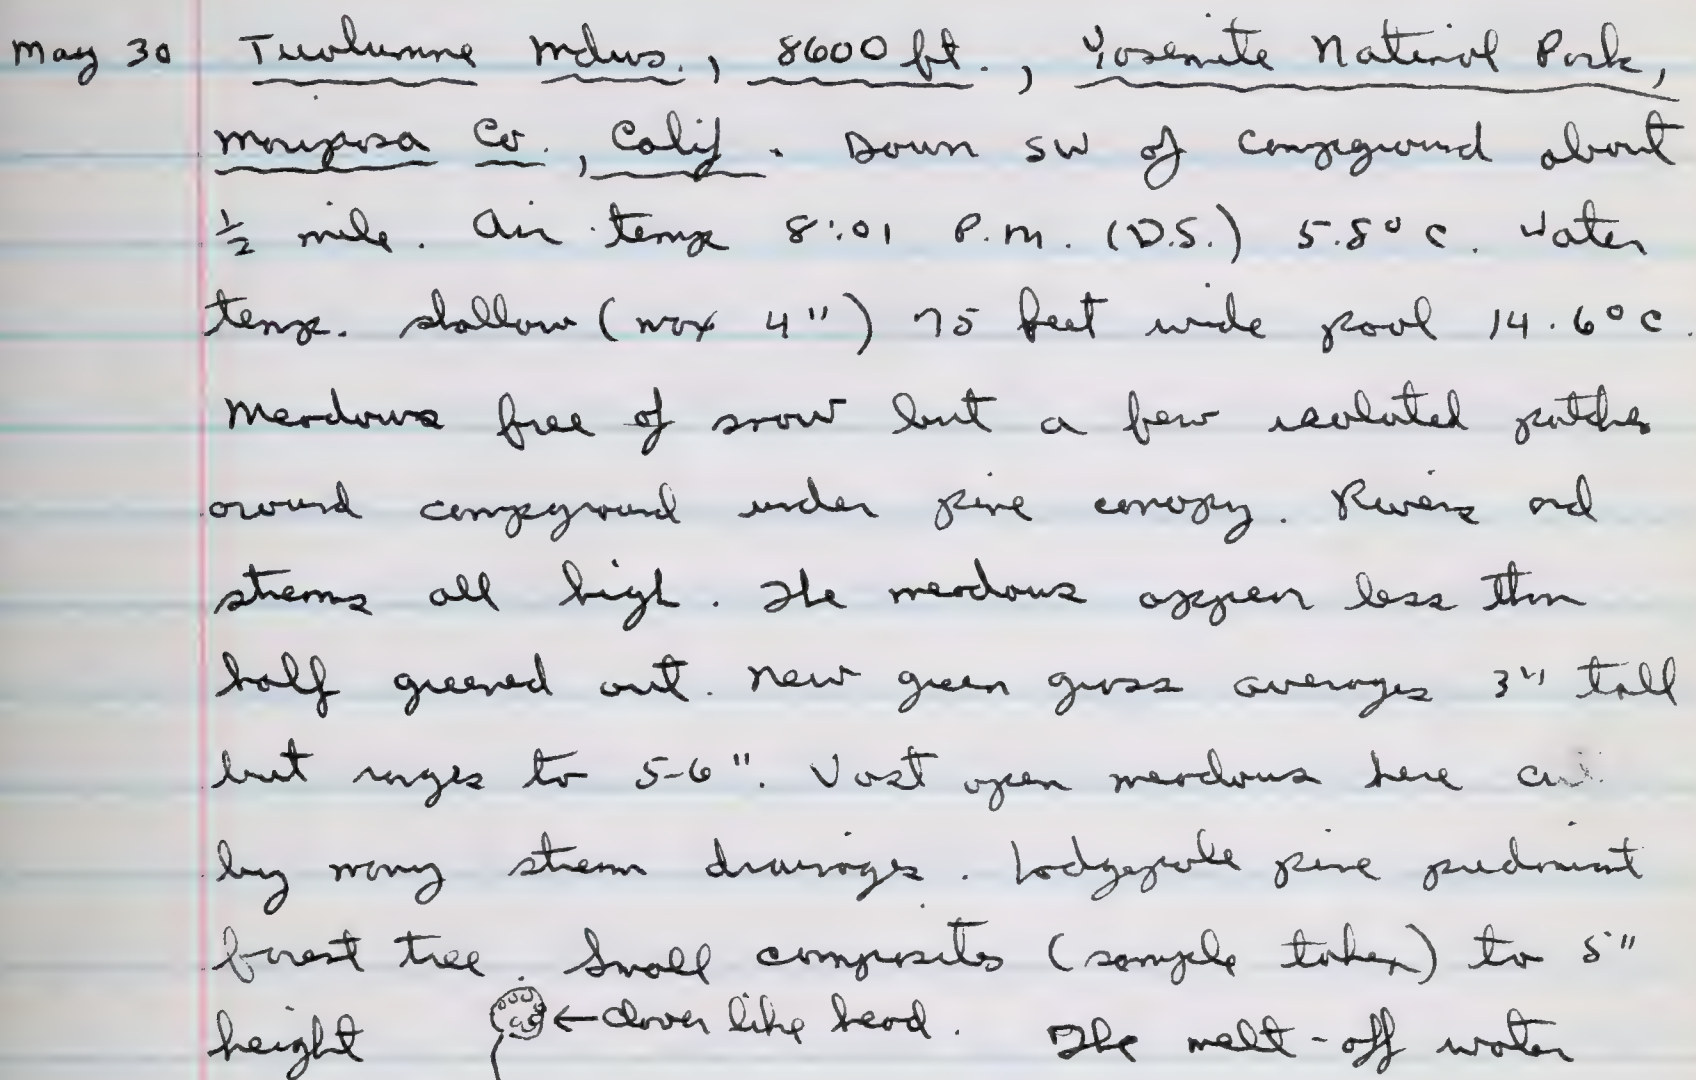 May 30 Tuolumne Mdws., 8600 ft., Yosemite National Park,
Mariposa Co., Calif. Down SW of campground about
½ mile. Air temp 8:01 P.M. (D.S.) 5.8° C. Water
temp. shallow (max 4") 75 feet wide pool 14.6° C.
Meadows free of snow but a few isolated patches
around campground under pine canopy. Rivers and
streams all high. The meadows appear less than
half greened out. New green grass averages 3" tall
but ranges to 5-6". Vast open meadows here cut
by many stream drainages. Lodgepole pine predominant
forest tree. Small composites (sample taken) to 5"
height ← clover like head. The melt-off water